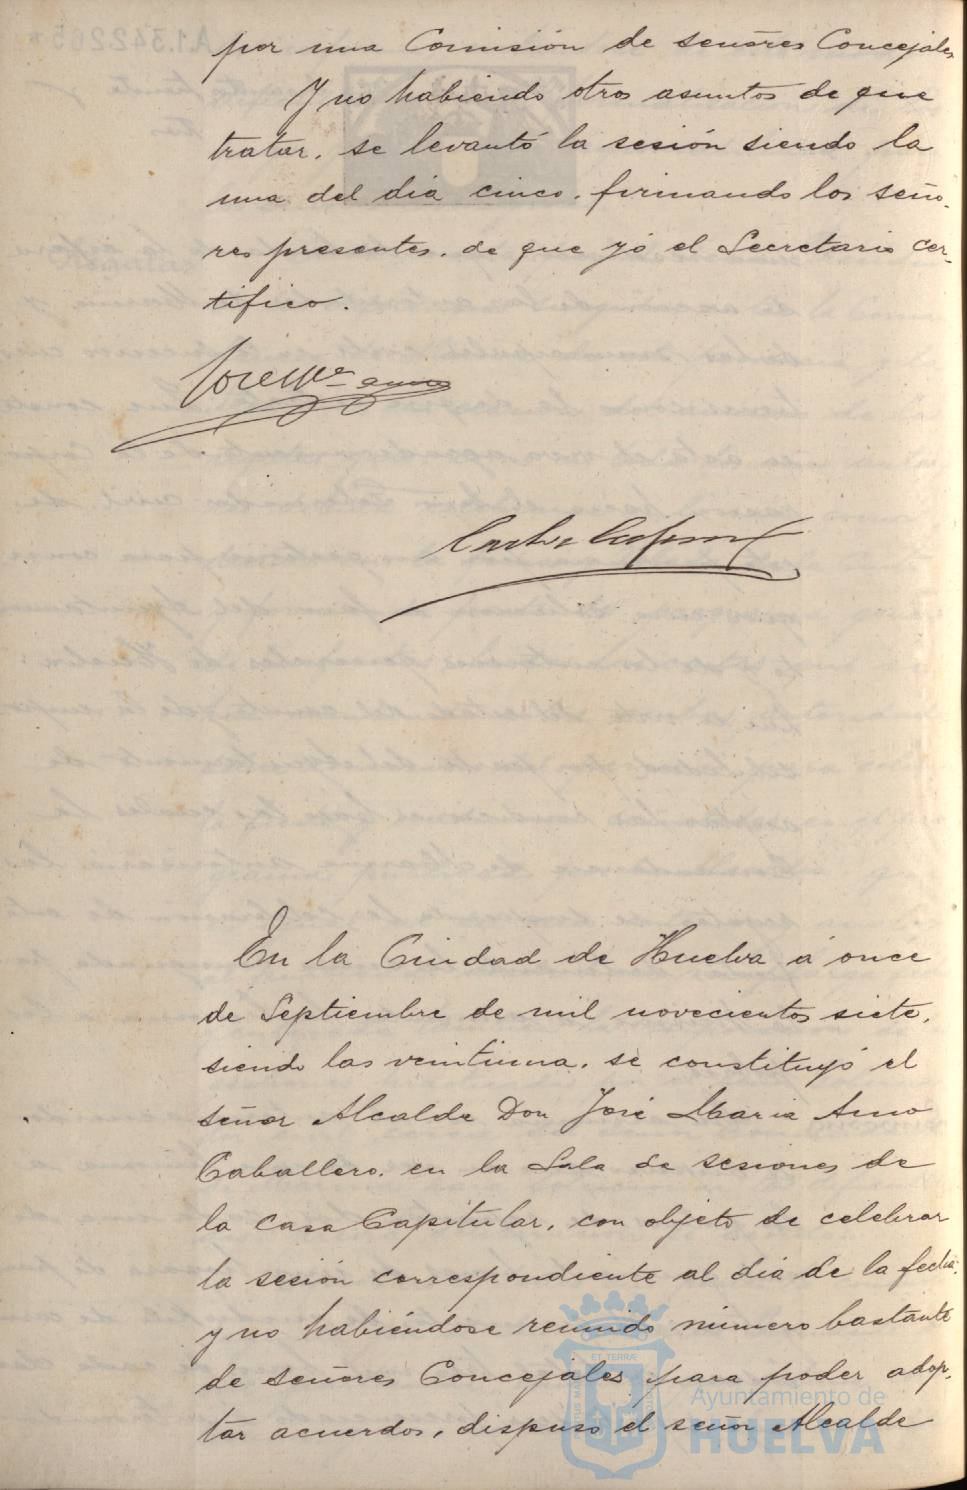 por una Comisión de señores Concejales
Y no habiendo otros asuntos de que
tratar, se levantó la sesión siendo la
una del dia cinco, firmando los seño-
res presentes, de que yó el Secretario cer-
tifico.
José Mª
En la Ciudad de Huelva á once
de Septiembre de mil novecientos siete,
siendo las veintiuna, se constituyó el
señor Alcalde Don José Maria Amo
Caballero, en la Sala de sesiones de
la Casa Capitular, con objeto de celebrar
la sesión correspondiente al dia de la fecha;
y no habiéndose reunido número bastante
de señores Concejales para poder adop-
tar acuerdos, dispuso el señor Alcalde
ET TERRÆ
Ayuntamiento de
HUELVA